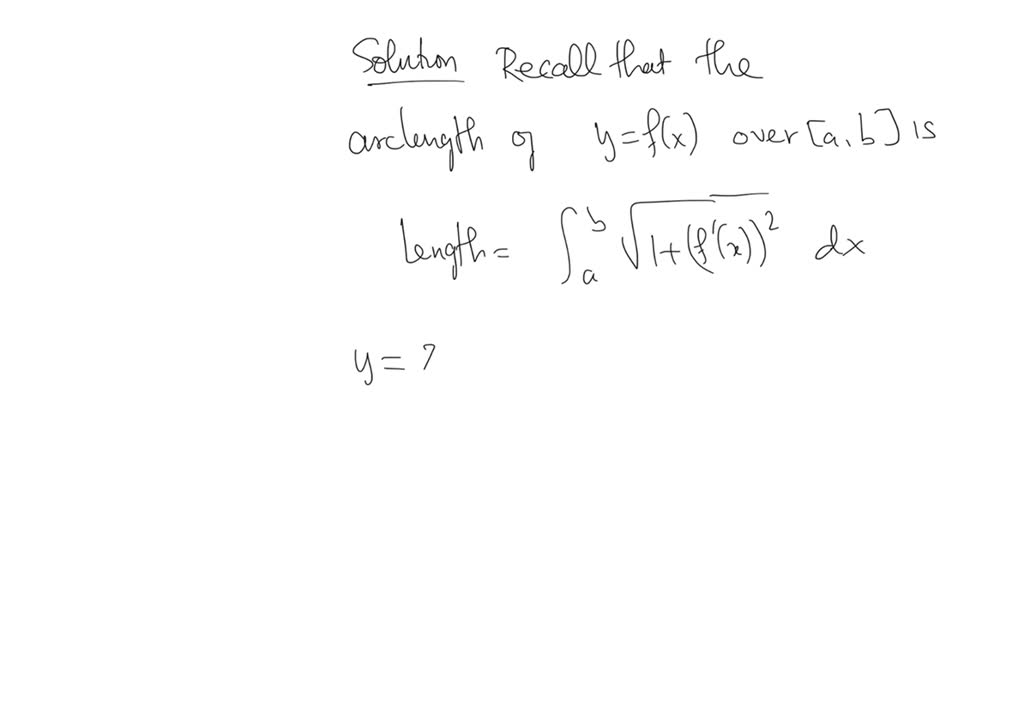 Solution Recall that the
arclength of y=f(x) over [a,b] is
length = ∫_a^b √(1+(f'(x))²) dx
y = ?